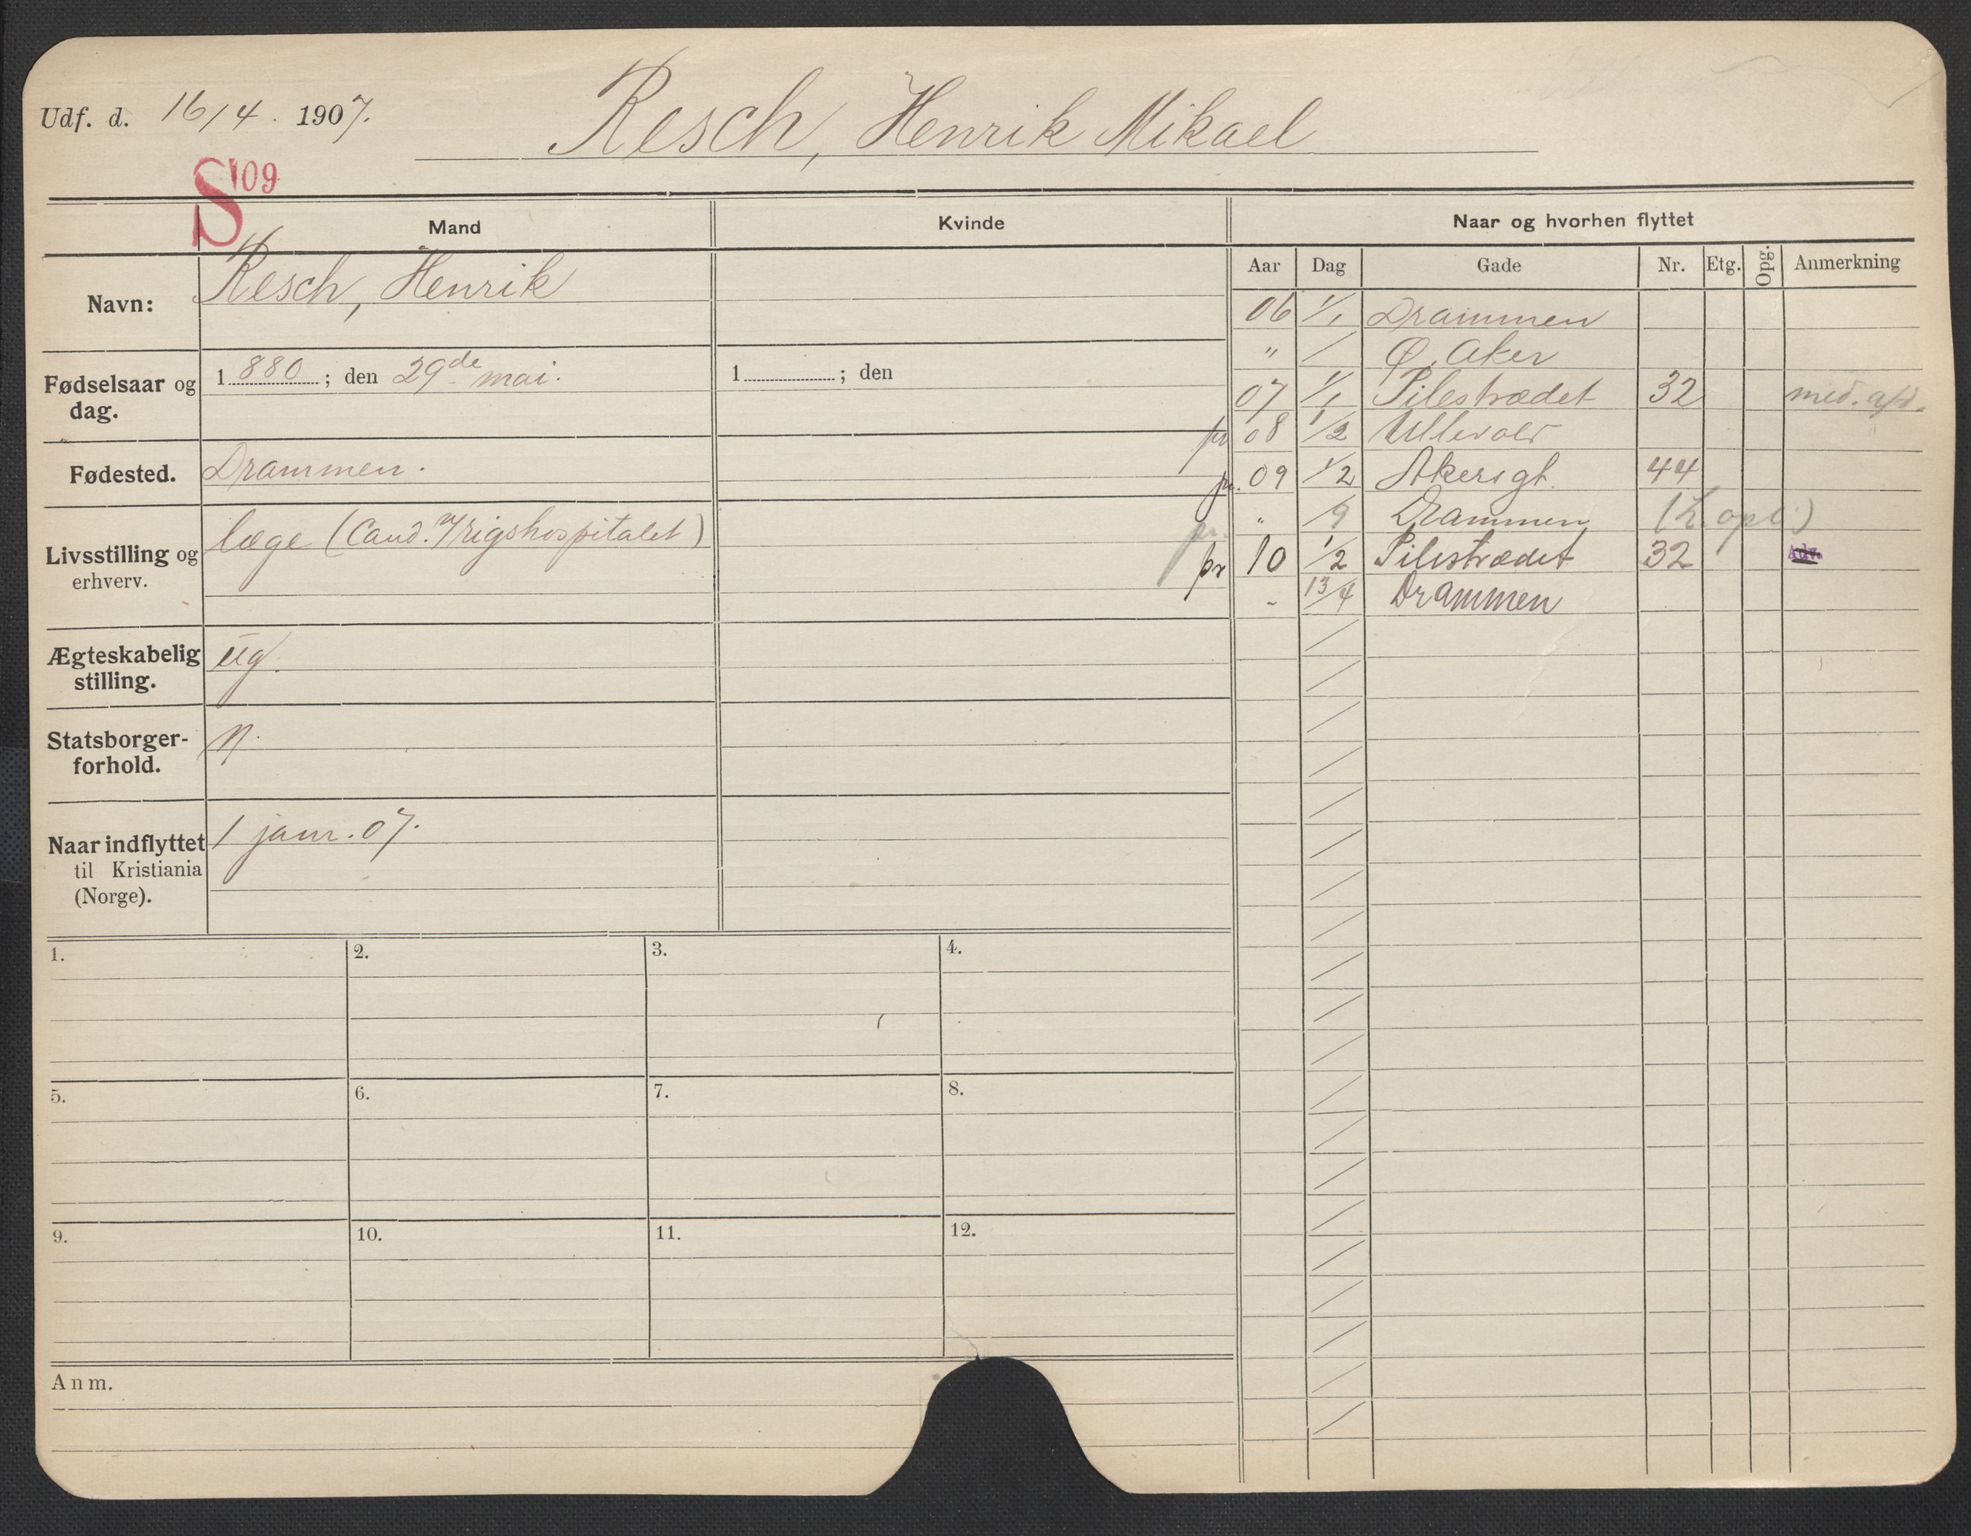 Udf. d. 16/4. 1907. Resch, Henrik Mikael
S '09
Mand Kvinde Naar og hvorhen flyttet
Aar Dag Gade Nr. Etg. Opg. Anmerkning
Navn: Resch, Henrik
Fødselsaar og dag. 1880; den 29de mai. 1 ; den
Fødested. Drammen.
Livsstilling og erhverv. læge (Cand. v/rigshospitalet)
Ægteskabelig stilling. ug.
Statsborger-forhold. n.
Naar indflyttet til Kristiania (Norge). 1 janr. 07.
06 1/1 Drammen
" / Ø. Aker
07 1/1 Pilestrædet 32 med. afd.
pr 08 1/2 Ullevold
pr. 09 1/2 Akersgt. 44
pr. " /9 Drammen (h. opl.)
pr 10 1/2 Pilestrædet 32 Adv.
" 13/4 Drammen
1. 2. 3. 4.
5. 6. 7. 8.
9. 10. 11. 12.
Anm.